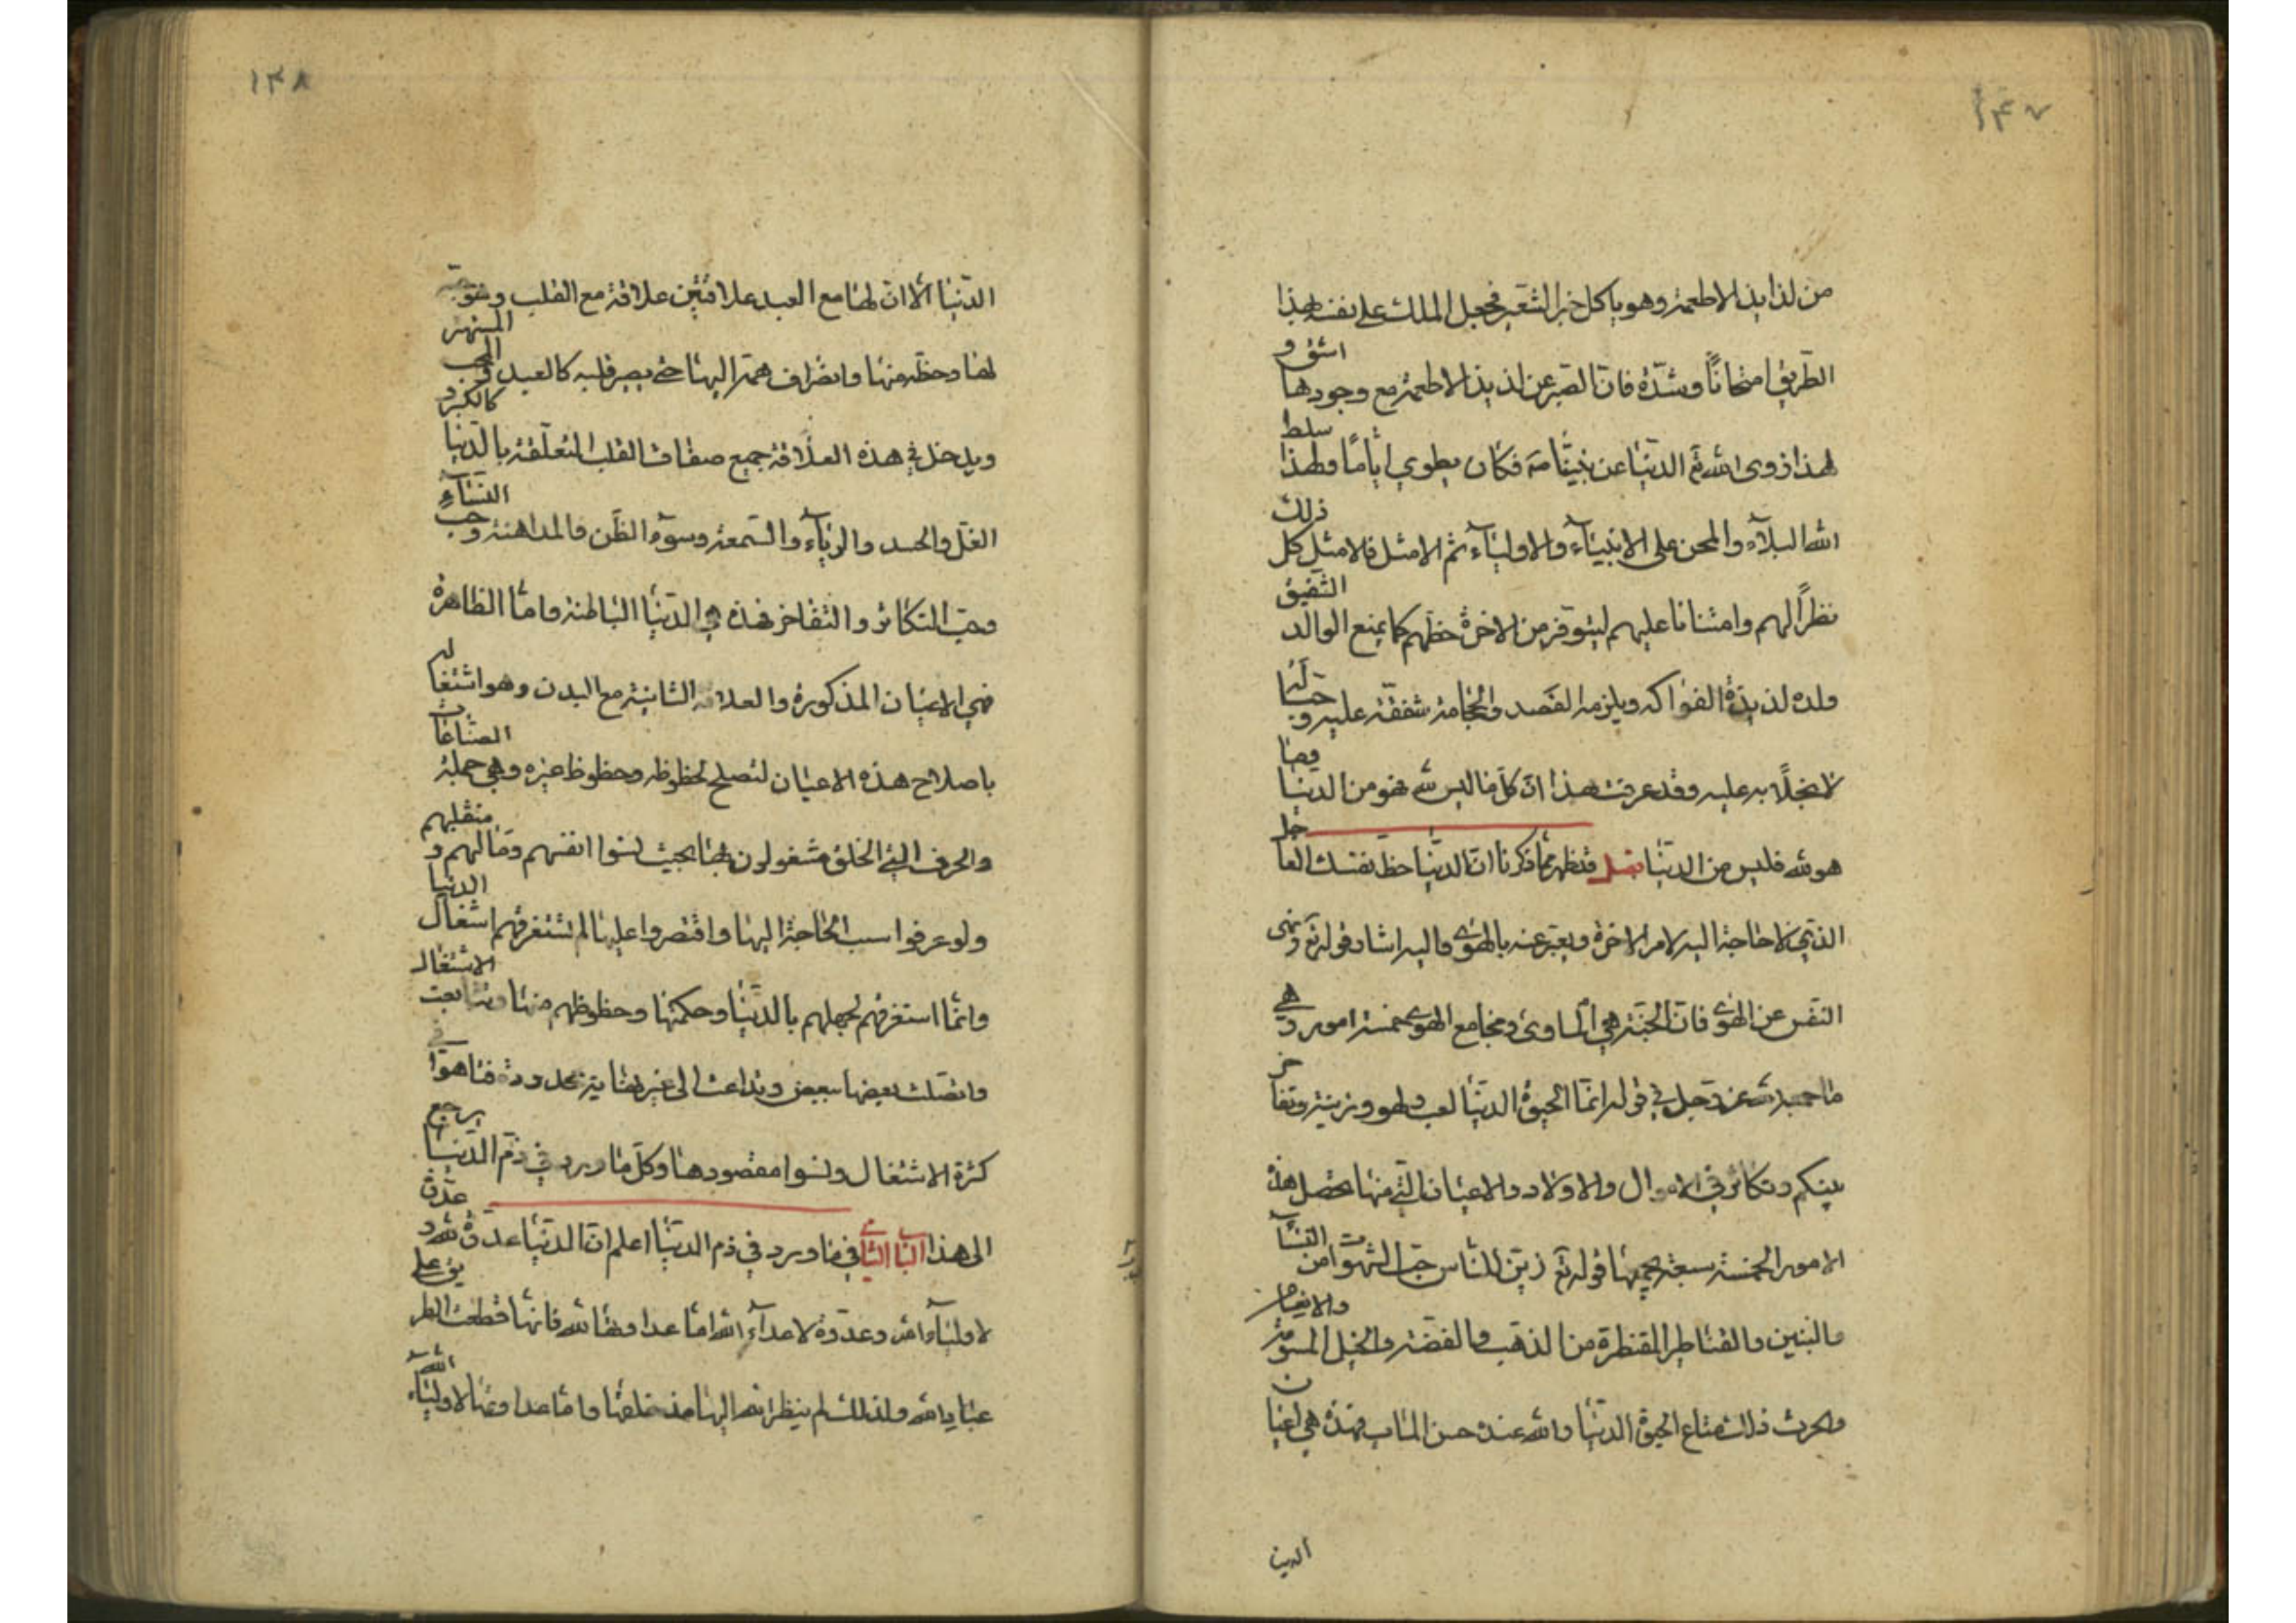 ١٤٧
من لذايذ الاطعمة وهو ياكل خبز الشعير فجعل الملك على نفسه بهذا
الطريق امتحانًا وشدّة فان الصبر عن لذيذ الاطعمة مع وجودها اشق و
لهذا زوى الله تع الدنيا عن نبينا صه فكان يطوي ايامًا ولهذا سلط
الله البلاء والمحن على الانبياء والاولياء ثم الامثل فالامثل كل ذلك
نظرًا لهم وامتنانا عليهم ليتوفر من الاخرة حظهم كما يمنع الوالد الشفيق
ولده لذيذة الفواكه ويلزمه الفصد والحجامة شفقة عليه وحبا له
لا بخلًا به عليه وقد عرفت هذا ان كل ما ليس لله فهو من الدنيا وما
هو لله فليس من الدنيا فصل فتظهر مما ذكرنا ان الدنيا حظ نفسك العاجل
الذي لا حاجة اليه لامر الاخرة ويعبر عنه بالهوى واليه اشار قوله تع ونهى
النفس عن الهوى فان الجنة هي الماوى ومجامع الهوى خمسة امور وهي
ما جمعه الله عز وجل في قوله انما الحيوة الدنيا لعب ولهو وزينة وتفاخر
بينكم وتكاثر في الاموال والاولاد والاعيان التي منها تحصل هذه
الامور الخمسة سبعة يجمعها قوله تع زين للناس حب الشهوات من النساء
والبنين والقناطير المقنطرة من الذهب والفضة والخيل المسومة والانعام
والحرث ذلك متاع الحيوة الدنيا والله عنده حسن الماب فهذه هي اعيان
الدنيا
١٣٨
الدنيا الا ان لها مع العبد علاقتين علاقة مع القلب وهو حبه
لها وحظه منها وانصراف همه اليها حتى يصير قلبه كالعبد او المحب المستهتر
ويدخل في هذه العلاقة جميع صفات القلب المتعلقة بالدنيا كالكبر و
الغل والحسد والرياء والسمعة وسوء الظن والمداهنة وحب الثناء
وحب التكاثر والتفاخر فهذه هي الدنيا الباطنة واما الظاهرة
فهي الاعيان المذكورة والعلاقة الثانية مع البدن وهو اشتغاله
باصلاح هذه الاعيان لتصلح لحظوظه وحظوظ غيره وهي جملة الصناعات
والحرف التي الخلق مشغولون بها بحيث نسوا انفسهم ومالهم و منقلبهم
ولو عرفوا سبب الحاجة اليها واقتصروا عليها لم تستغرقهم اشغال الدنيا
وانما استغرقهم لجهلهم بالدنيا وحكمتها وحظوظهم منها وتتابعت الاشتغال
واتصلت بعضها ببعض وتداعت الى غير نهاية محدودة فتاهوا في
كثرة الاشتغال ونسوا مقصودها وكل ما ورد في ذم الدنيا يرجع
الى هذا الباب الثاني في ما ورد في ذم الدنيا اعلم ان الدنيا عدوة لله و عدوة
لاولياء الله وعدوة لاعداء الله اما عداوتها لله فانها قطعت الطريق على
عباد الله ولذلك لم ينظر الله اليها منذ خلقها واما عداوتها لاولياء الله